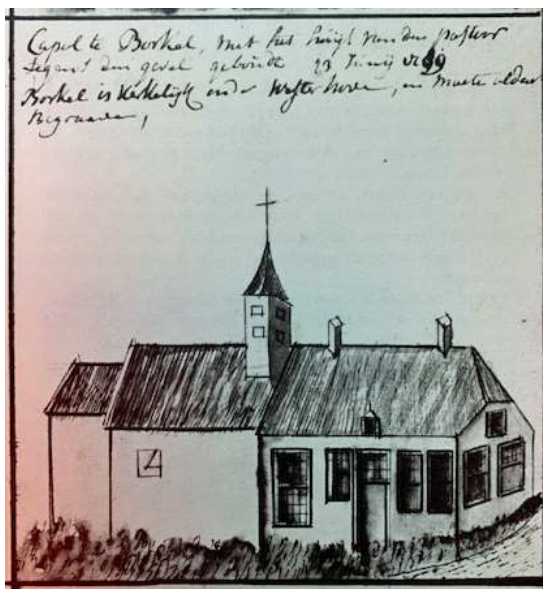 Capel te Borkel, met het huijs van den pastoor
tegens den gevel gebouwt 23 Junij
Borkel is kerkelijk onder Westerhoven, en moete aldaer
Begraaven,